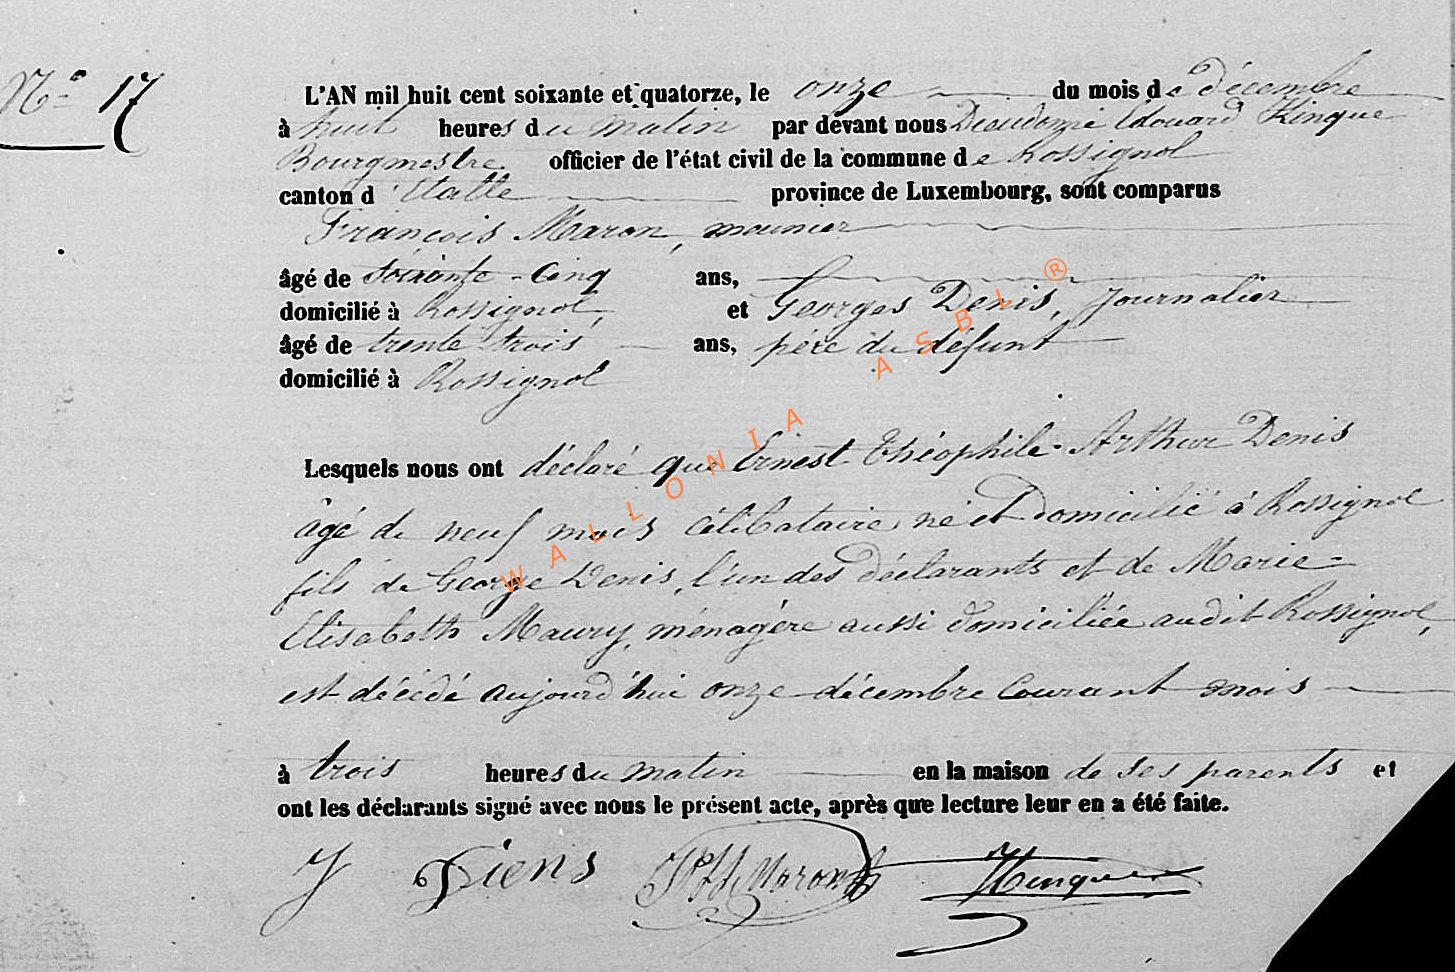 N° 17
L'AN mil huit cent soixante et quatorze, le onze du mois de décembre
à huit heures du matin par devant nous Dieudonné Edouard Hinque
Bourgmestre officier de l'état civil de la commune de Rossignol
canton d'Etalle province de Luxembourg, sont comparus
François Maron, meunier
âgé de soixante-cinq ans,
domicilié à Rossignol, et Georges Denis, journalier
âgé de trente trois ans, père du défunt
domicilié à Rossignol
Lesquels nous ont déclaré que Ernest Théophile-Arthur Denis
âgé de neuf mois célibataire, né et domicilié à Rossignol
fils de George Denis, l'un des déclarants et de Marie-
Elisabeth Maury, ménagère aussi domiciliée audit Rossignol,
est décédé aujourd'hui onze décembre courant mois
à trois heures du matin en la maison de ses parents et
ont les déclarants signé avec nous le présent acte, après que lecture leur en a été faite.
Maron
WALLONIA ASBL ®